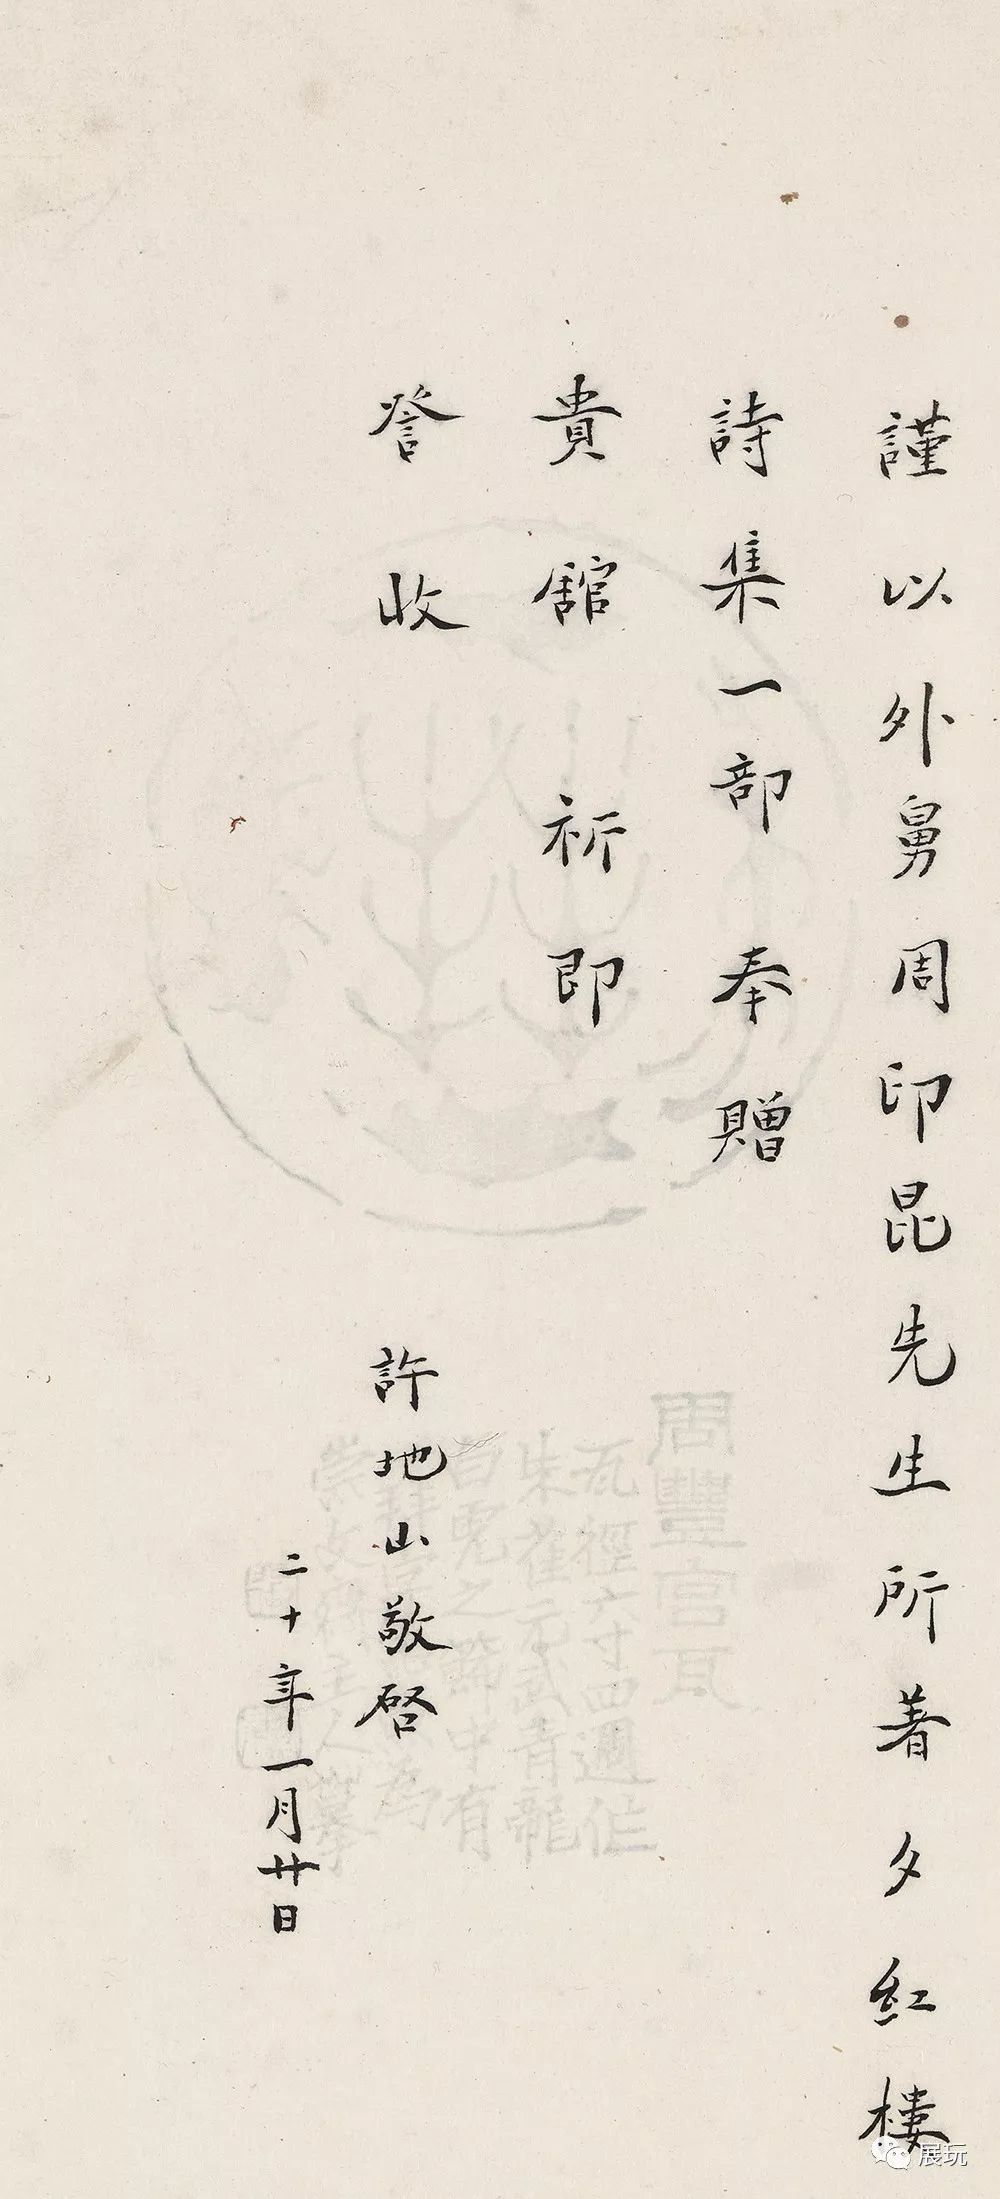 謹以外舅周印昆先生所著夕紅樓
詩集一部奉贈
貴館祈即
詧收
許地山敬啓
二十年一月廿日
周豐宫瓦
瓦徑六寸四週作
朱雀元武青龍
白虎之飾中有
崇文齋主人摹
展玩